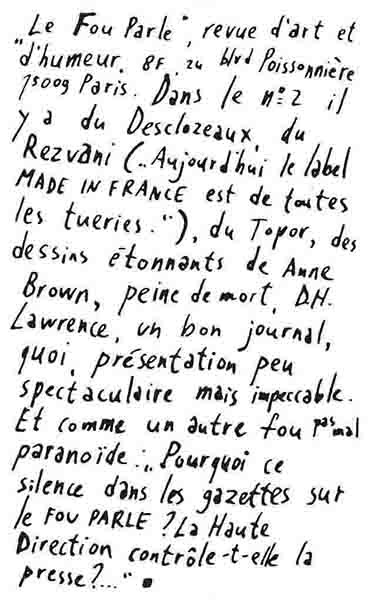 „Le Fou Parle", revue d'art et
d'humeur. 8F, 24 blvd Poissonnière
75009 Paris. Dans le n°2 il
y a du Desclozeaux, du
Rezvani („Aujourd'hui le label
MADE IN FRANCE est de toutes
les tueries."), du Topor, des
dessins étonnants de Anne
Brown, peine de mort, D.H.
Lawrence, un bon journal,
quoi, présentation peu
spectaculaire mais impeccable.
Et comme un autre fou pas mal
paranoïde : „Pourquoi ce
silence dans les gazettes sur
le FOU PARLE ? La Haute
Direction contrôle-t-elle la
presse?..."